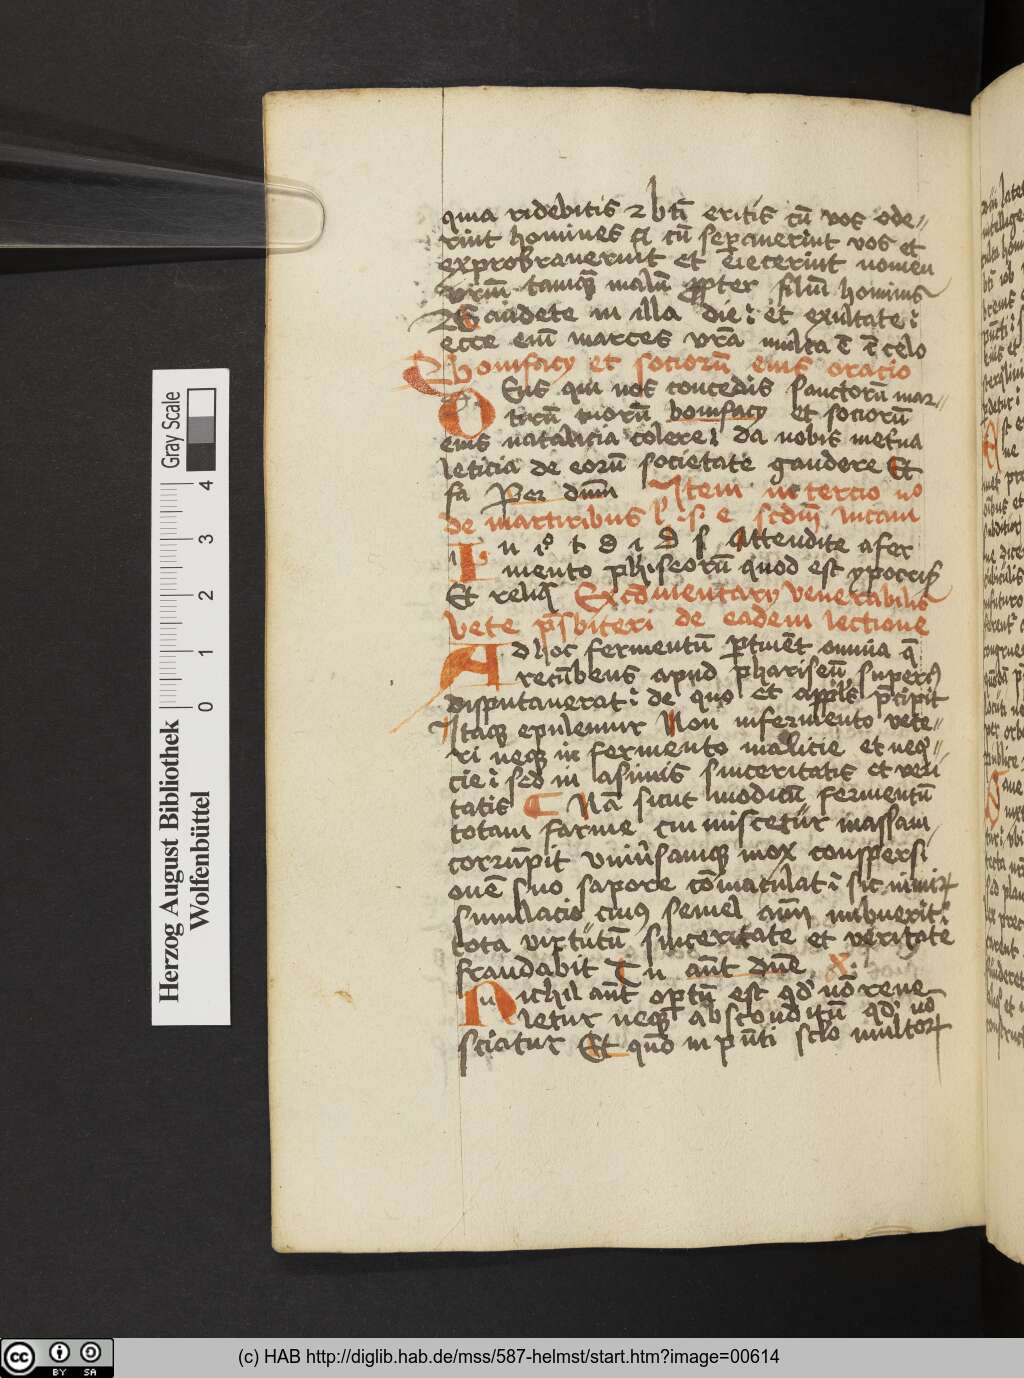 quia ridebitis ⁊ bti̅ eritis cu̅ vos ode//
rint homines ⁊ cu̅ sepaverint vos et
exprobraverint et eiecerint nomen
vr̅m tamq̅ malu̅ ꝓpter filiu̅ hominis
Gaudete in illa die ⁊ et exultate ⁊
ecce eni̅ marces vr̅a multa e̅ i̅ celo
Bonifacy et socioru̅ eius oracio
DEus qui nos concedis sanctoru̅ mar//
tiru̅ tuoru̅ bonifacy et socioru̅
eius natalicia colere ⁊ da nobis in et̅na
leticia de eoru̅ societate gaudere Et
fa Per dnm̅ Item in tercio no
de martiribus scdm̅ lucam
In i° t d i d s Attendite a fer
mento phiseoru̅ quod est ypocris̅
Et reliq̅ Ex co̅mentary venerabilis
bete p̅sbiteri de eadem lectione
Ad hoc fermentu̅ ꝑtine̅t omnia q̅
recu̅bens apud phariseu̅ superꝰ
disputaverat ⁊ de quo et aplꝰs p̅cipit
Itaq̅ epulemur Non in fermento vete//
ri neq̅ in fermento malicie et neq̅//
cie ⁊ sed in asimis sinceritatis et veri
tatis Na̅ sicut modicu̅ fermentu̅
totam farine cui miscetur massam
corru̅pit univ̅samq̅ mox conspersi
one̅ suo sapore co̅maculat ⁊ sic nimiꝝ
simulacio cuiꝰ semel aim̅ imbuerit ⁊
tota virtutu̅ sinceritate et veritate
fraudabit Tu aut̅ dne̅
Nichil aut̅ oꝑtu̅ est qd̅ no̅ reve
letur neq̅ absconditu̅ qd̅ no̅
sciatur Et quo̅ in pn̅ti sclo multoꝝ
Gray Scale
0 1 2 3 4
Herzog August Bibliothek
Wolfenbüttel
cc BY SA
(c) HAB http://diglib.hab.de/mss/587-helmst/start.htm?image=00614